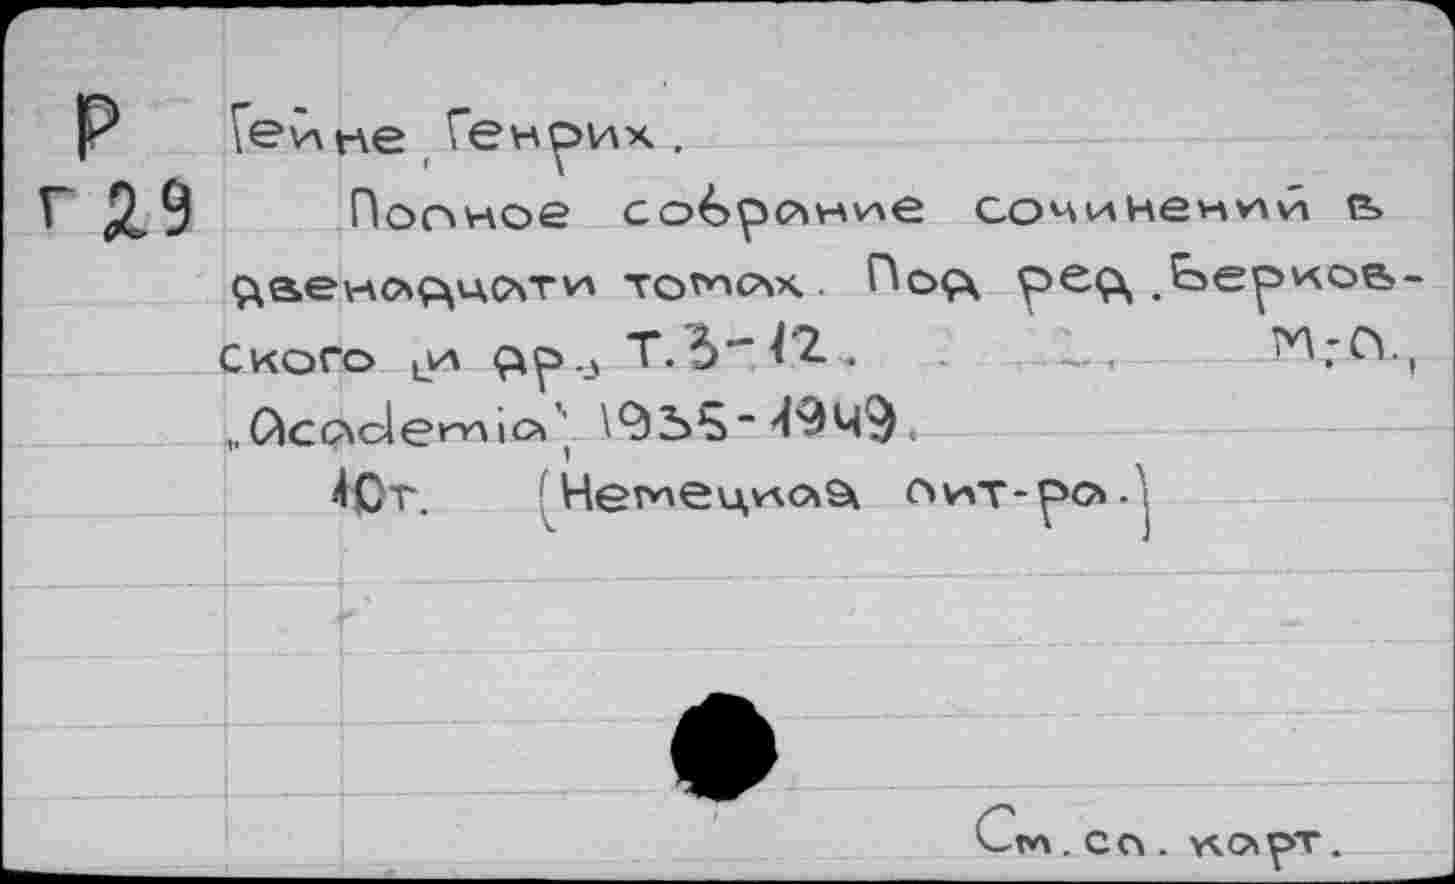 Р Гейне, Генрих.
Г29 Полное собрание сочинений в
двенадцати томах. Под ред. Берков-
ского [и др.] Т.3-12. М.-Л.,
„Academia", 1935-1949.
10т. [Немецкая лит-ра.]
См. сл. карт.